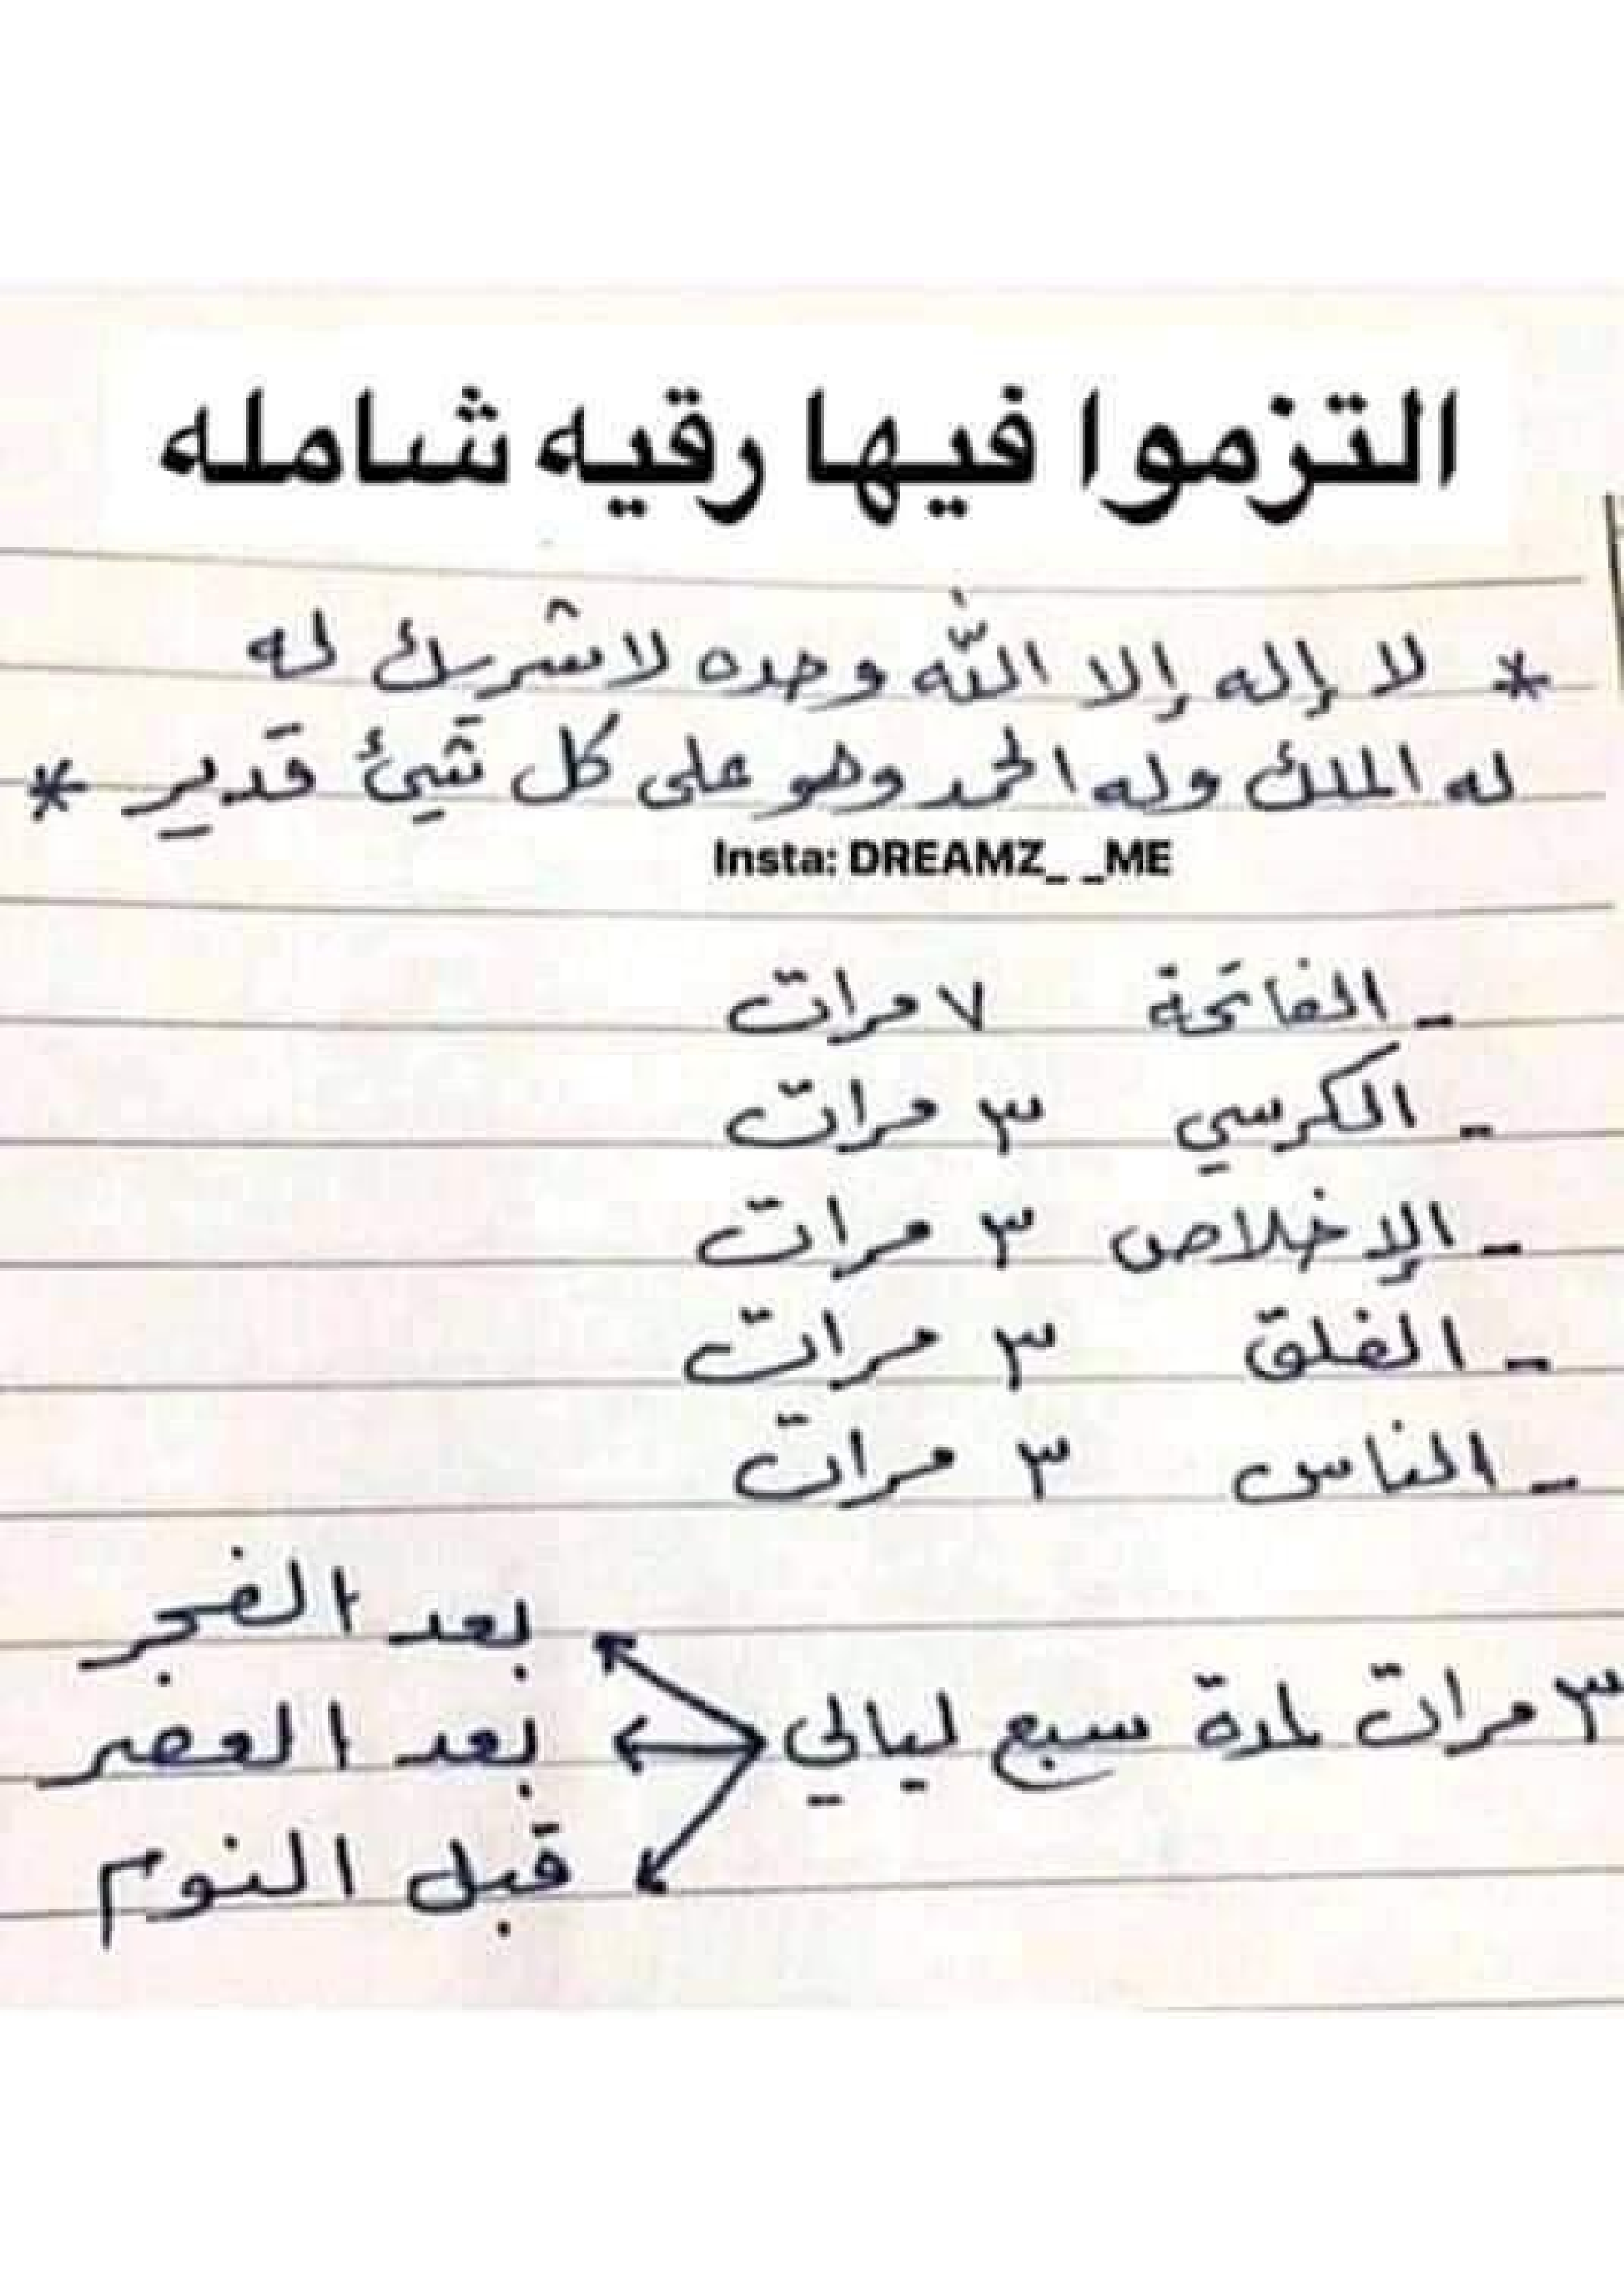 التزموا فيها رقيه شامله
* لا إله إلا الله وحده لا شريك له
له الملك وله الحمد وهو على كل شيئ قدير *
Insta: DREAMZ_ _ME
- الفاتحة ٧ مرات
- الكرسي ٣ مرات
- الإخلاص ٣ مرات
- الفلق ٣ مرات
- الناس ٣ مرات
٣ مرات لمدة سبع ليالي
بعد الفجر
بعد العصر
قبل النوم